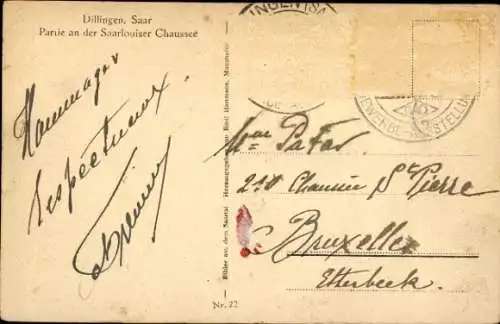 Dillingen, Saar
Partie an der Saarlouiser Chaussee
Hommages
respectueux
Bilder aus dem Saartal
Herausgegeben von Emil Herrmann, Mannheim
Nr. 22
INGEN (SA
GEWERBL. STELLU
Mme
210 Chaussée St Pierre
Bruxelles
Etterbeek.